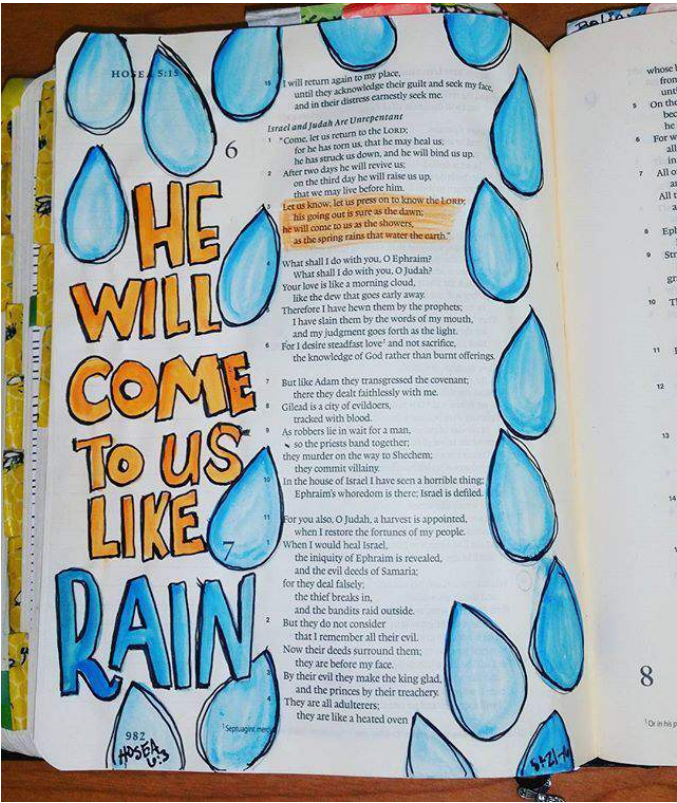 HOSEA 5:15
15 I will return again to my place,
until they acknowledge their guilt and seek my face,
and in their distress earnestly seek me.
Israel and Judah Are Unrepentant
6
1 "Come, let us return to the LORD;
for he has torn us, that he may heal us;
he has struck us down, and he will bind us up.
2 After two days he will revive us;
on the third day he will raise us up,
that we may live before him.
3 Let us know; let us press on to know the LORD;
his going out is sure as the dawn;
he will come to us as the showers,
as the spring rains that water the earth."
4 What shall I do with you, O Ephraim?
What shall I do with you, O Judah?
Your love is like a morning cloud,
like the dew that goes early away.
5 Therefore I have hewn them by the prophets;
I have slain them by the words of my mouth,
and my judgment goes forth as the light.
6 For I desire steadfast love¹ and not sacrifice,
the knowledge of God rather than burnt offerings.
7 But like Adam they transgressed the covenant;
there they dealt faithlessly with me.
8 Gilead is a city of evildoers,
tracked with blood.
9 As robbers lie in wait for a man,
so the priests band together;
they murder on the way to Shechem;
they commit villainy.
10 In the house of Israel I have seen a horrible thing;
Ephraim's whoredom is there; Israel is defiled.
11 For you also, O Judah, a harvest is appointed,
when I restore the fortunes of my people.
7
1 When I would heal Israel,
the iniquity of Ephraim is revealed,
and the evil deeds of Samaria;
for they deal falsely;
the thief breaks in,
and the bandits raid outside.
2 But they do not consider
that I remember all their evil.
Now their deeds surround them;
they are before my face.
3 By their evil they make the king glad,
and the princes by their treachery.
4 They are all adulterers;
they are like a heated oven
¹ Septuagint
982
HE
WILL
COME
TO US
LIKE
RAIN
HOSEA
6:3
whose
from
5 On the
he
6 For w
all
in
7 All o
All t
8 Eph
9 Str
10 Th
11
12
13
14
8
¹ Or in his